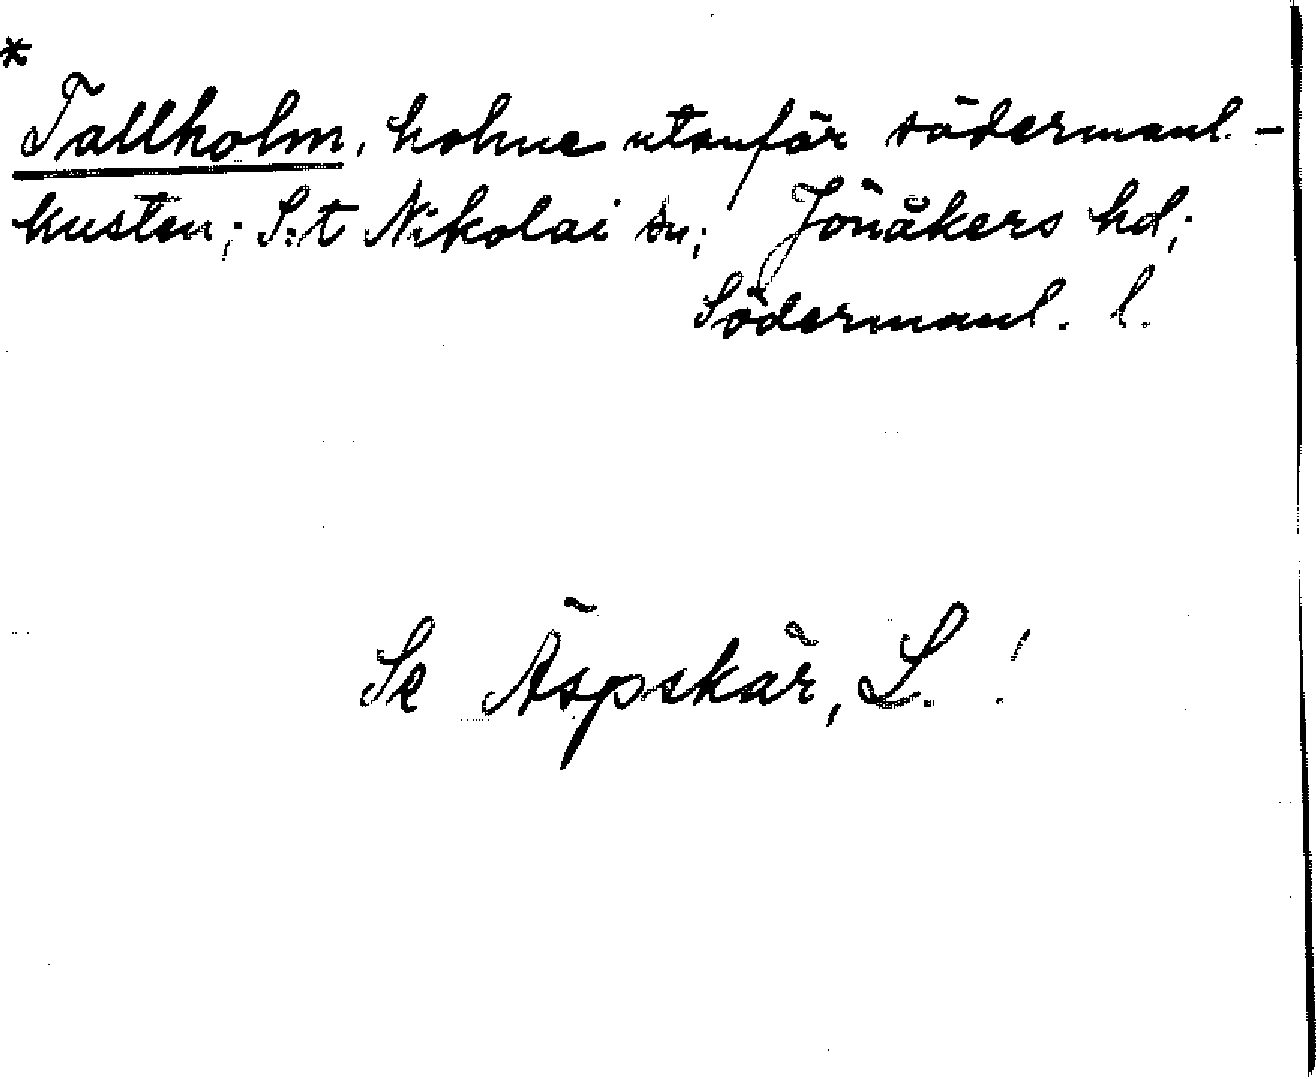 *
Tallholm, holme utanför södermanl. -
kusten; S:t Nikolai sn; Jönåkers hd;
Södermanl. l.
Se Äspskär, L. !